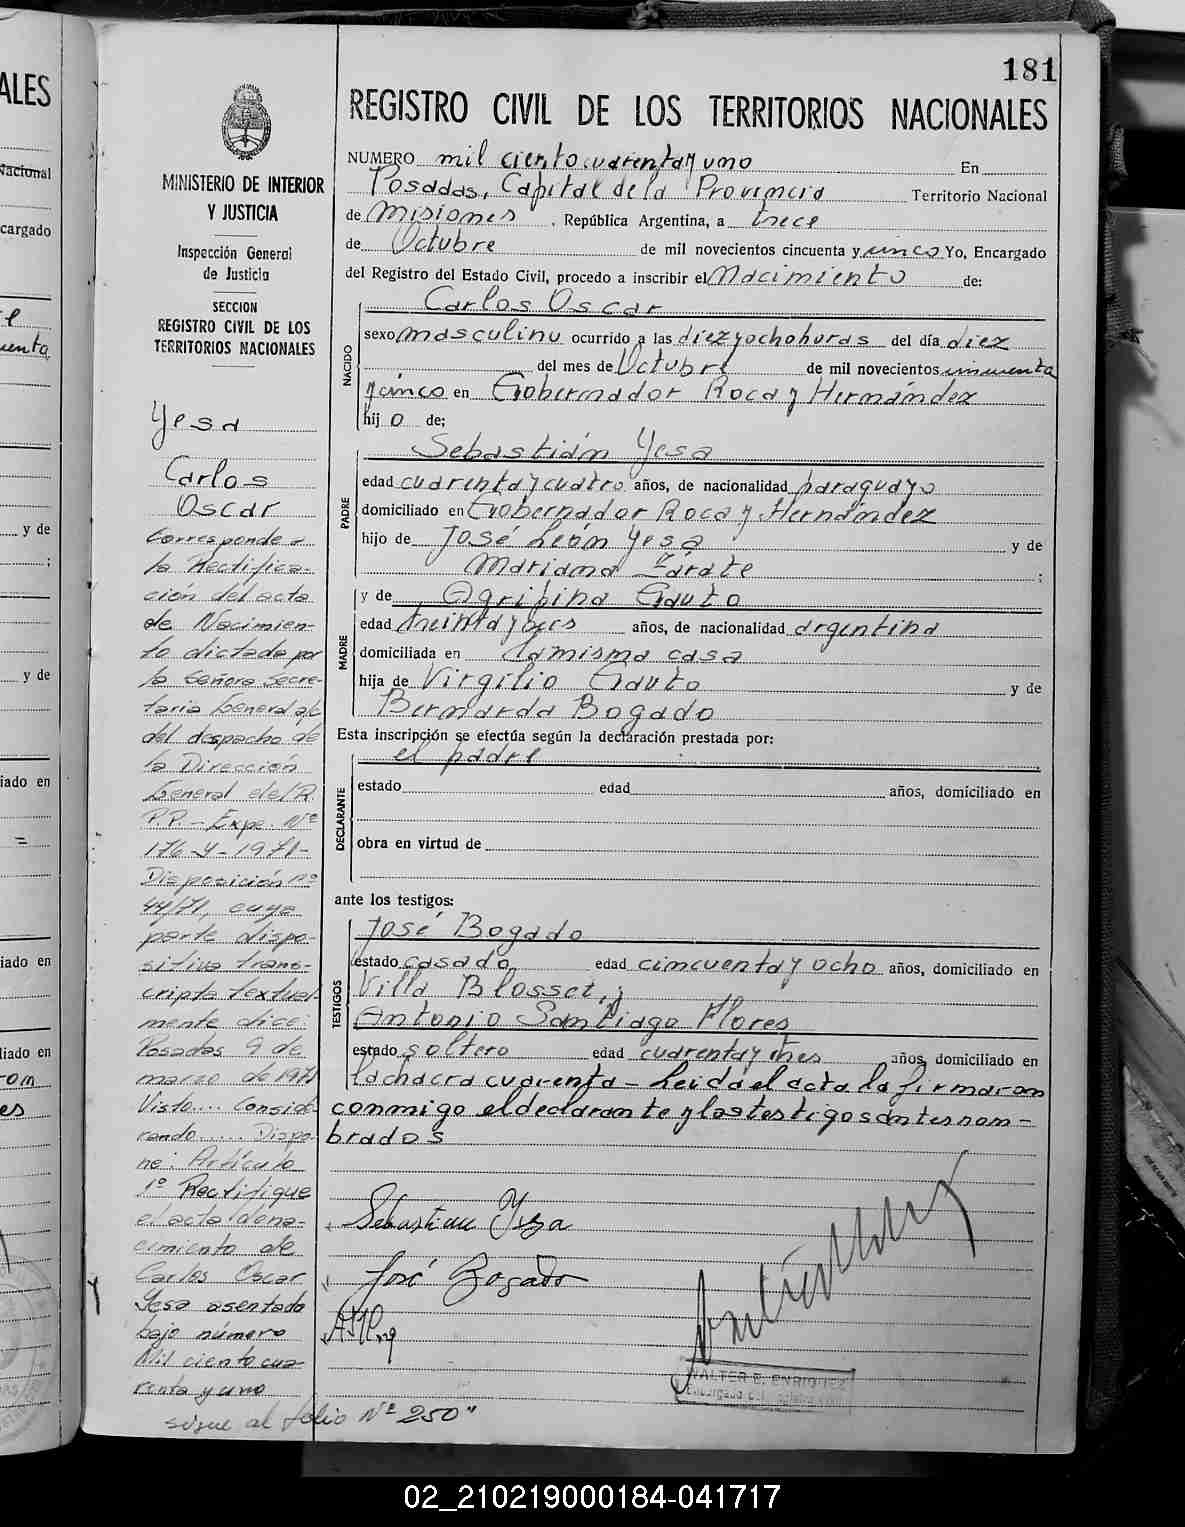 ALES
Nacional
cargado
y de
y de
iado en
iado en
liado en
181
MINISTERIO DE INTERIOR
Y JUSTICIA
Inspección General
de Justicia
SECCION
REGISTRO CIVIL DE LOS
TERRITORIOS NACIONALES
Yesa
Carlos
Oscar
Corresponde a
la Rectifica-
ción del acta
de Nacimien-
to dictada por
la Señora Secre-
taria General a/c
del despacho de
la Dirección
General del R.
P.P. - Expe. Nº
176-Y-1971-
Disposición nº
44/71, cuya
parte dispo-
sitiva trans-
cripta textual-
mente dice:
Posadas 9 de
marzo de 1971
Visto.... Conside-
rando...... Dispo-
ne: Artículo
1º Rectifique
el acta de na-
cimiento de
Carlos Oscar
Yesa asentada
bajo número
Mil ciento cua-
renta y uno
sigue al folio Nº 250"
REGISTRO CIVIL DE LOS TERRITORIOS NACIONALES
NUMERO mil ciento cuarenta y uno En
Posadas, Capital de la Provincia Territorio Nacional
de Misiones, República Argentina, a trece
de Octubre de mil novecientos cincuenta y cinco Yo, Encargado
del Registro del Estado Civil, procedo a inscribir el Nacimiento de:
NACIDO
Carlos Oscar
sexo masculino ocurrido a las diez y ocho horas del día diez
del mes de Octubre de mil novecientos cincuenta
y cinco en Gobernador Roca y Hernández
hijo de;
PADRE
Sebastián Yesa
edad cuarenta y cuatro años, de nacionalidad paraguayo
domiciliado en Gobernador Roca y Hernández
hijo de José León Yesa y de
Mariana Zárate ;
MADRE
y de Agripina Gauto
edad treinta y años, de nacionalidad argentina
domiciliada en la misma casa
hija de Virgilio Gauto y de
Bernarda Bogado
Esta inscripción se efectúa según la declaración prestada por:
DECLARANTE
el padre
estado edad años, domiciliado en
obra en virtud de
ante los testigos:
TESTIGOS
José Bogado
estado casado edad cincuenta y ocho años, domiciliado en
Villa Blosset, y
Antonio Santiago Flores
estado soltero edad cuarenta y tres años, domiciliado en
la chacra cuarenta - Leida el acta la firmaron
conmigo el declarante y los testigos antes nom-
brados
Sebastian Yesa
José Bogado
WALTER E. ENRIQUEZ
Encargado del Registro Civil
02_210219000184-041717